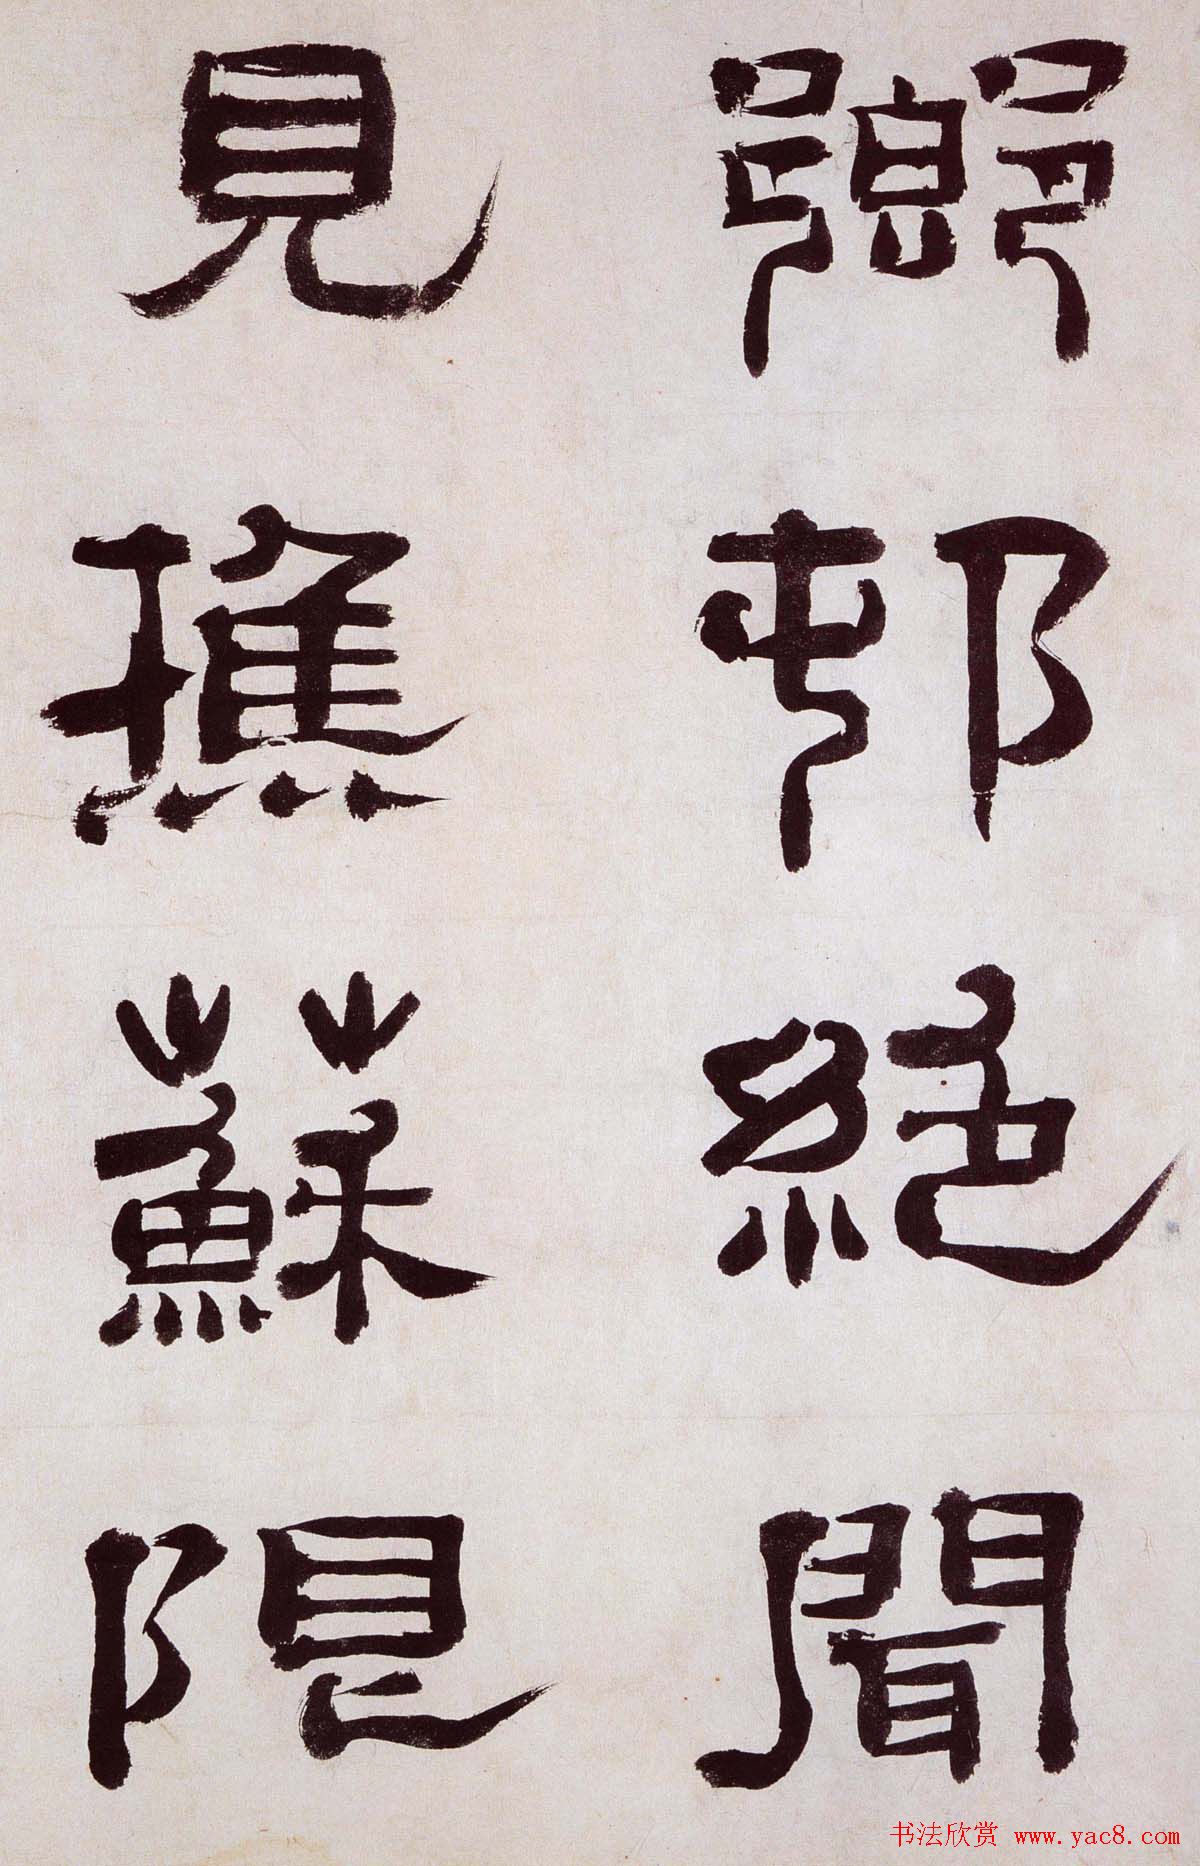 鄉邨絕聞
見樵蘇限
书法欣赏 www.yac8.com